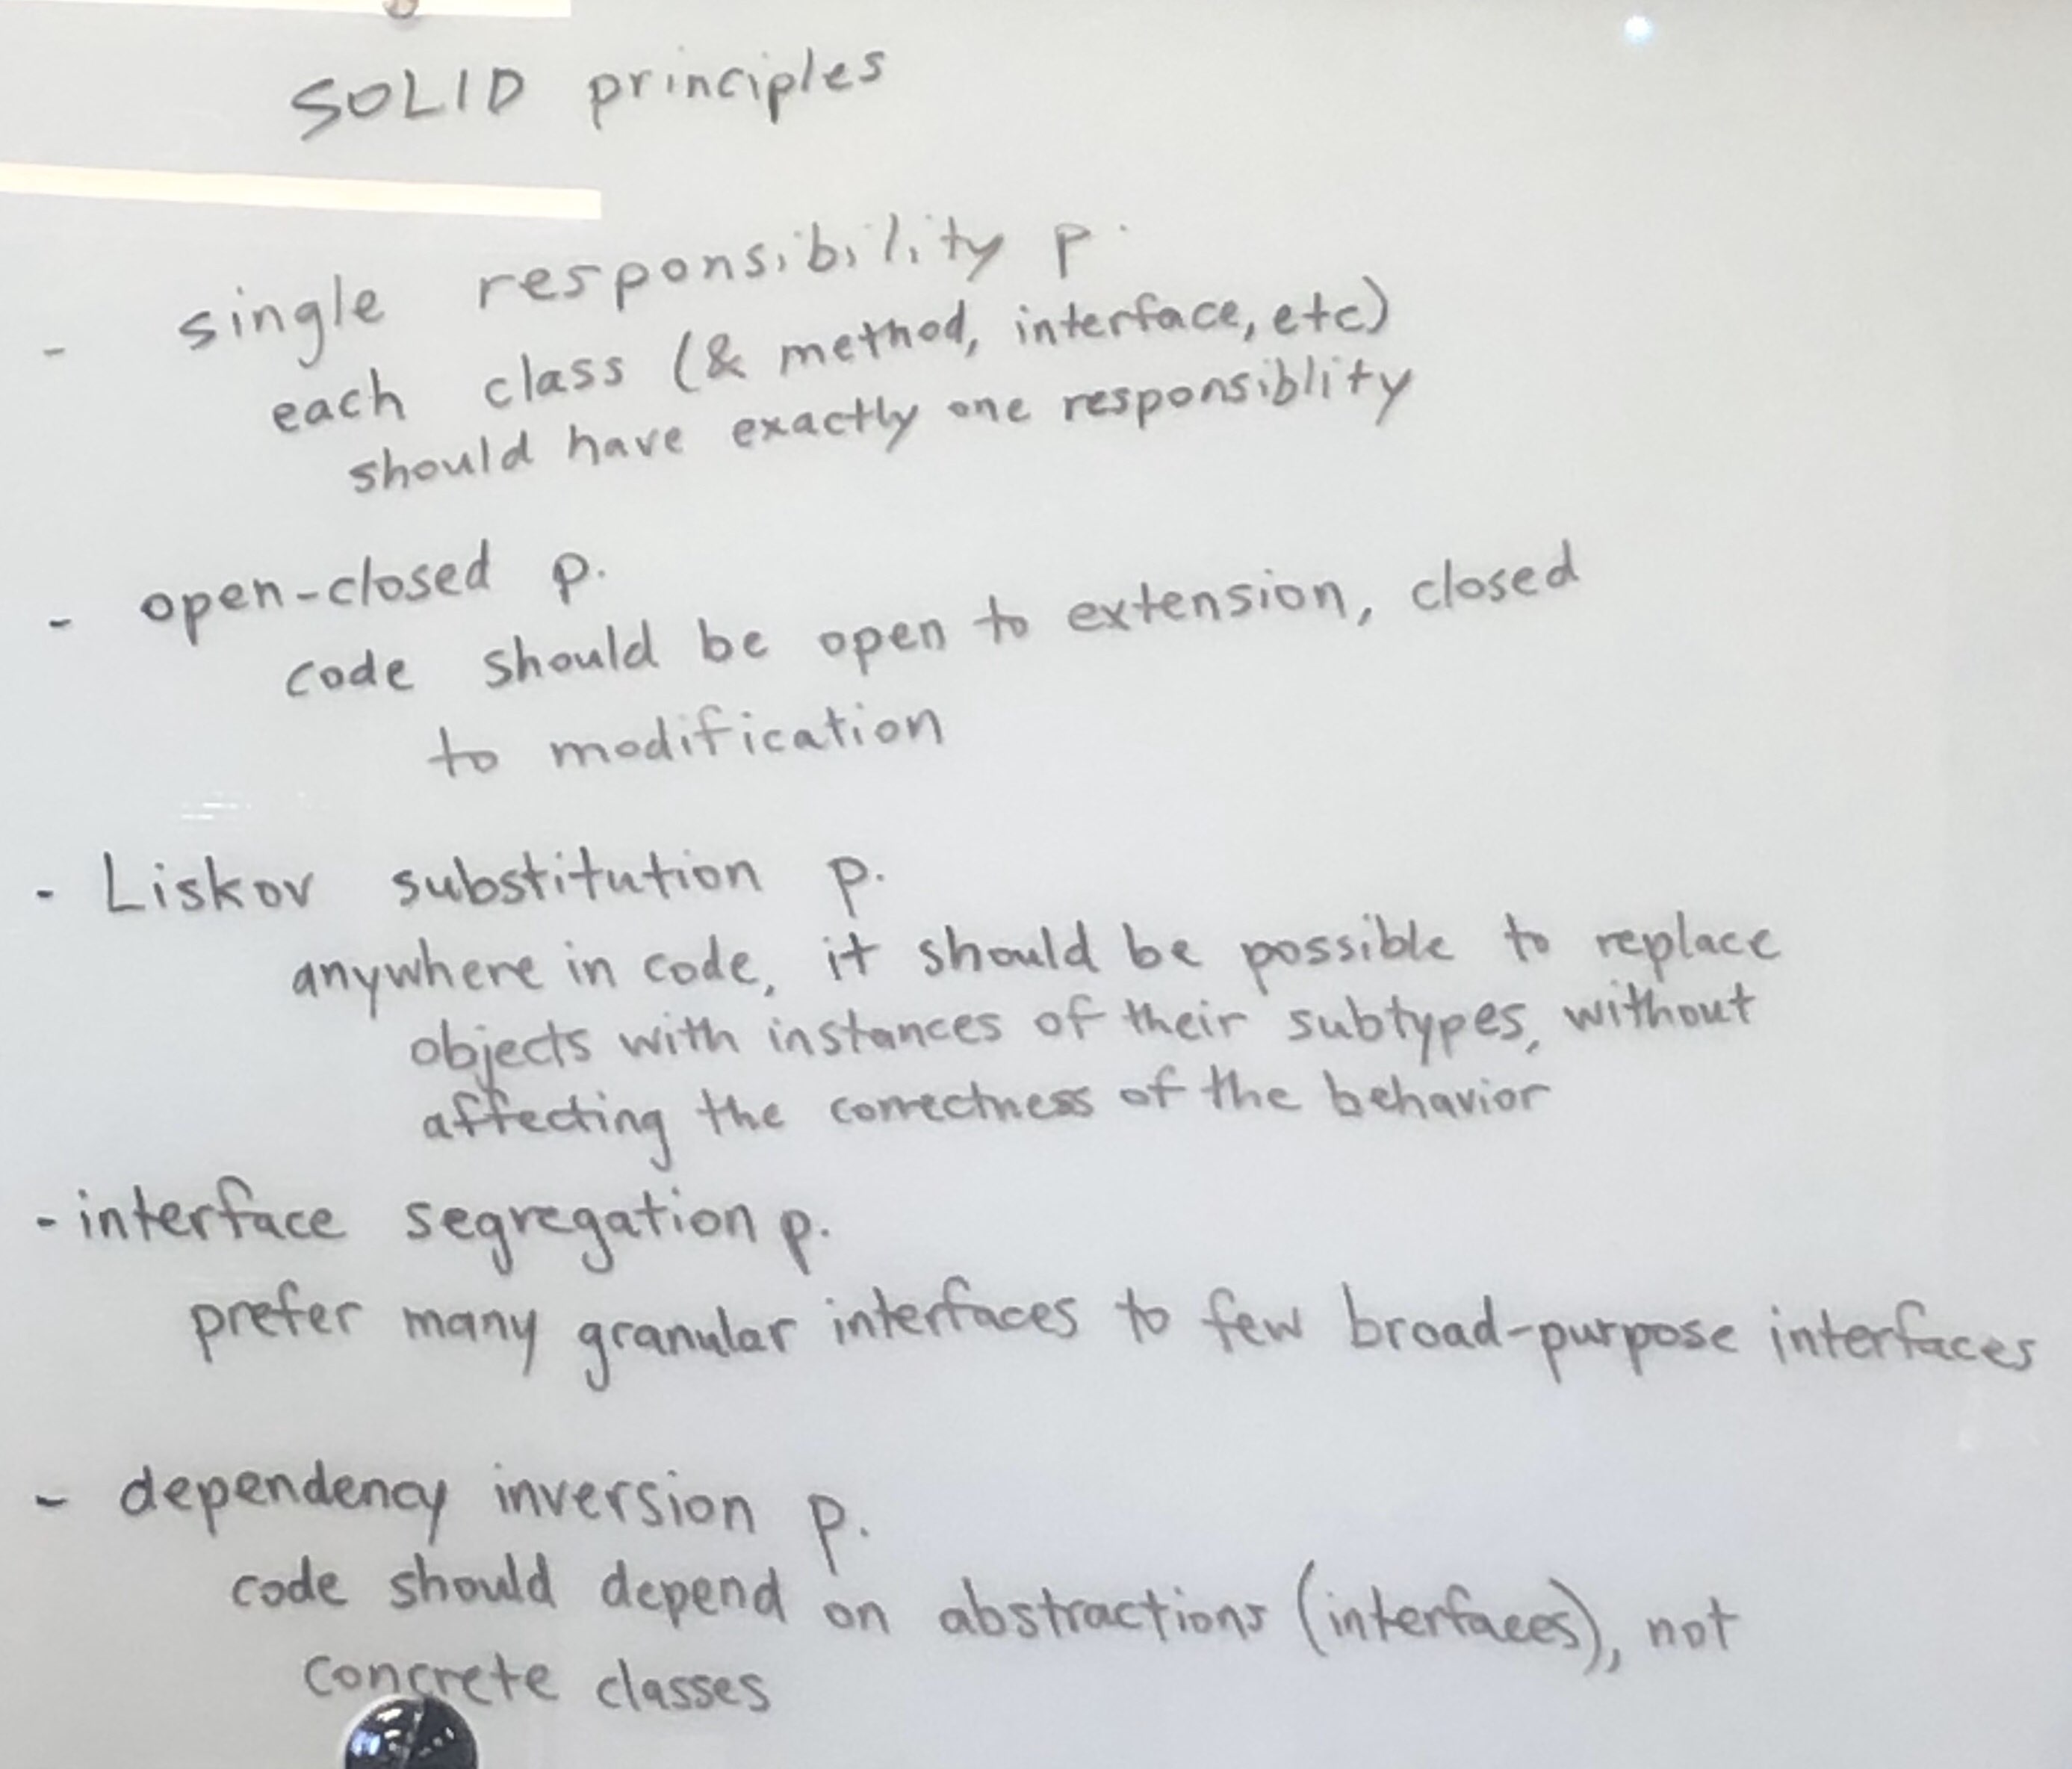 SOLID principles
- single responsibility p.
each class (& method, interface, etc)
should have exactly one responsiblity
- open-closed p.
code should be open to extension, closed
to modification
- Liskov substitution p.
anywhere in code, it should be possible to replace
objects with instances of their subtypes, without
affecting the correctness of the behavior
- interface segregation p.
prefer many granular interfaces to few broad-purpose interfaces
- dependency inversion p.
code should depend on abstractions (interfaces), not
concrete classes